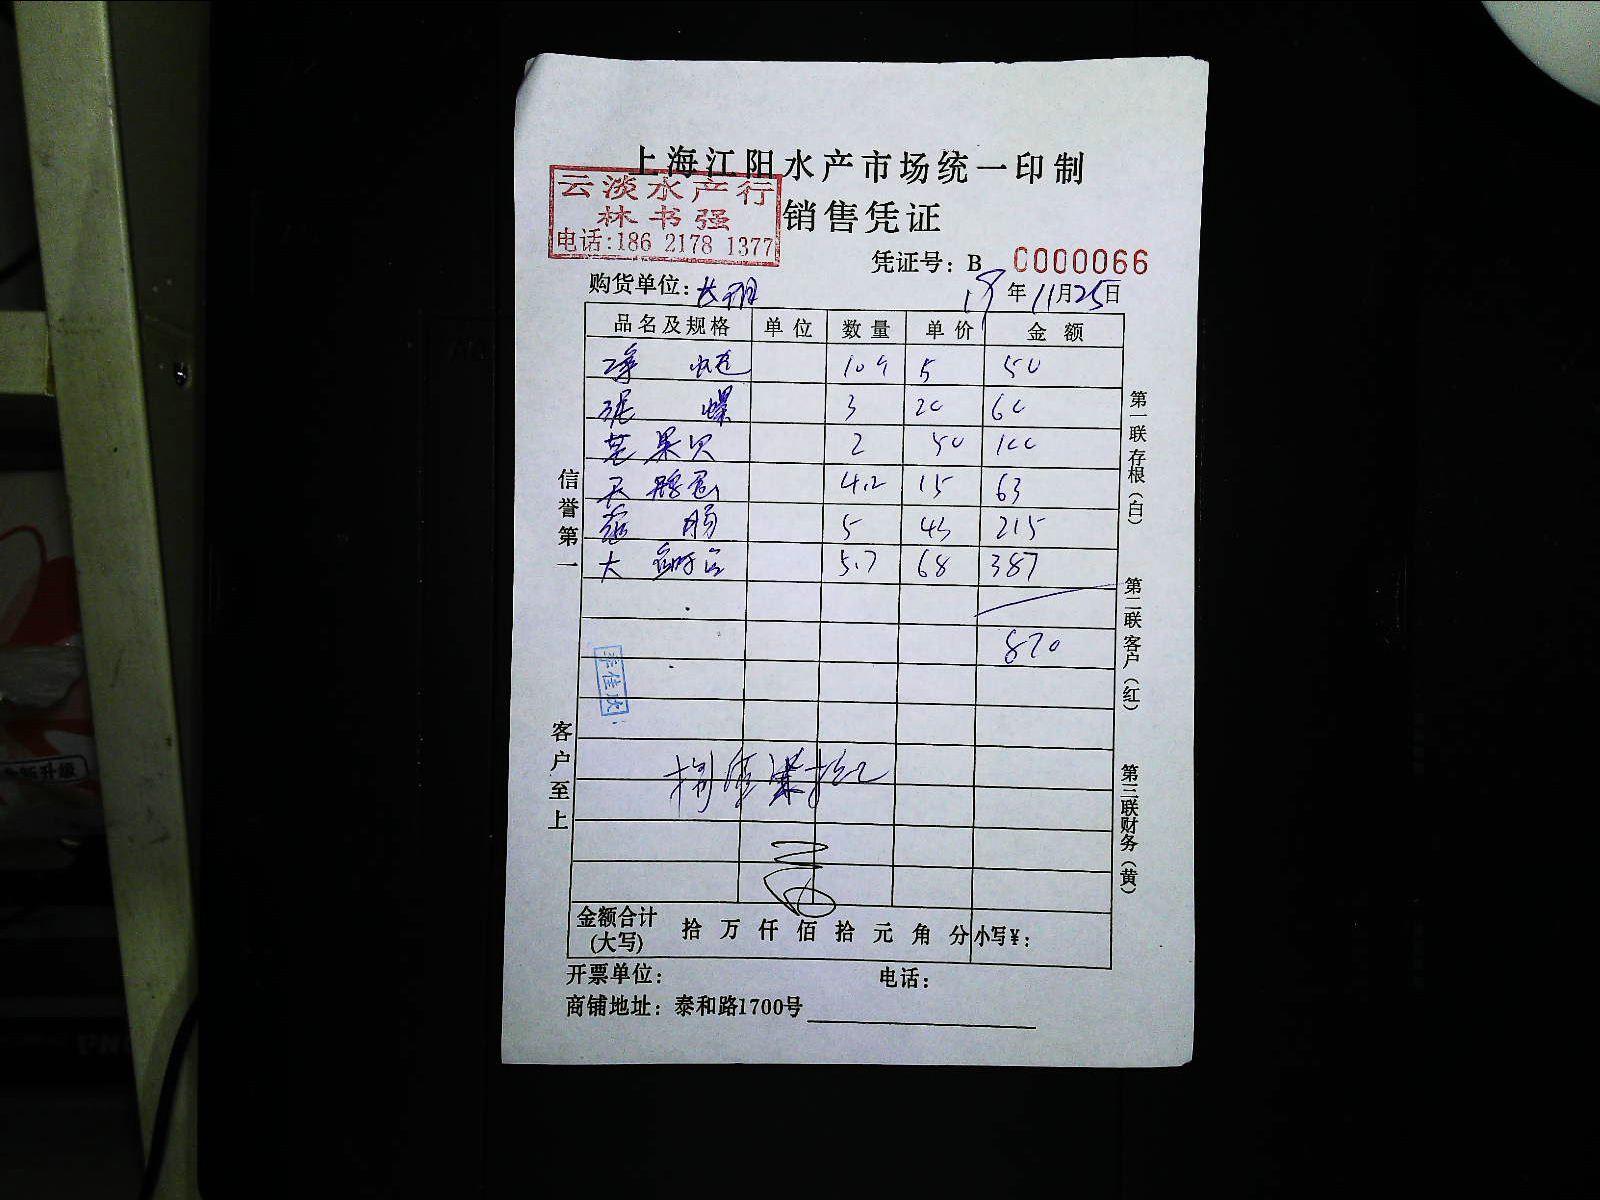 上海江阳水产市场统一印制
云淡水产行
林书强
电话:186 2178 1377
销售凭证
凭证号: B 0000066
购货单位:
19年11月25日
品名及规格 单位 数量 单价 金额
10斤 5 50
泥 螺 3 20 60
芒果贝 2 50 100
4.2 15 63
肠 5 43 215
大 5.7 68 387
870
捌佰柒拾元
金额合计(大写) 拾 万 仟 佰 拾 元 角 分 小写¥:
开票单位: 电话:
商铺地址: 泰和路1700号
信誉第一
客户至上
第一联存根(白)
第二联客户(红)
第三联财务(黄)